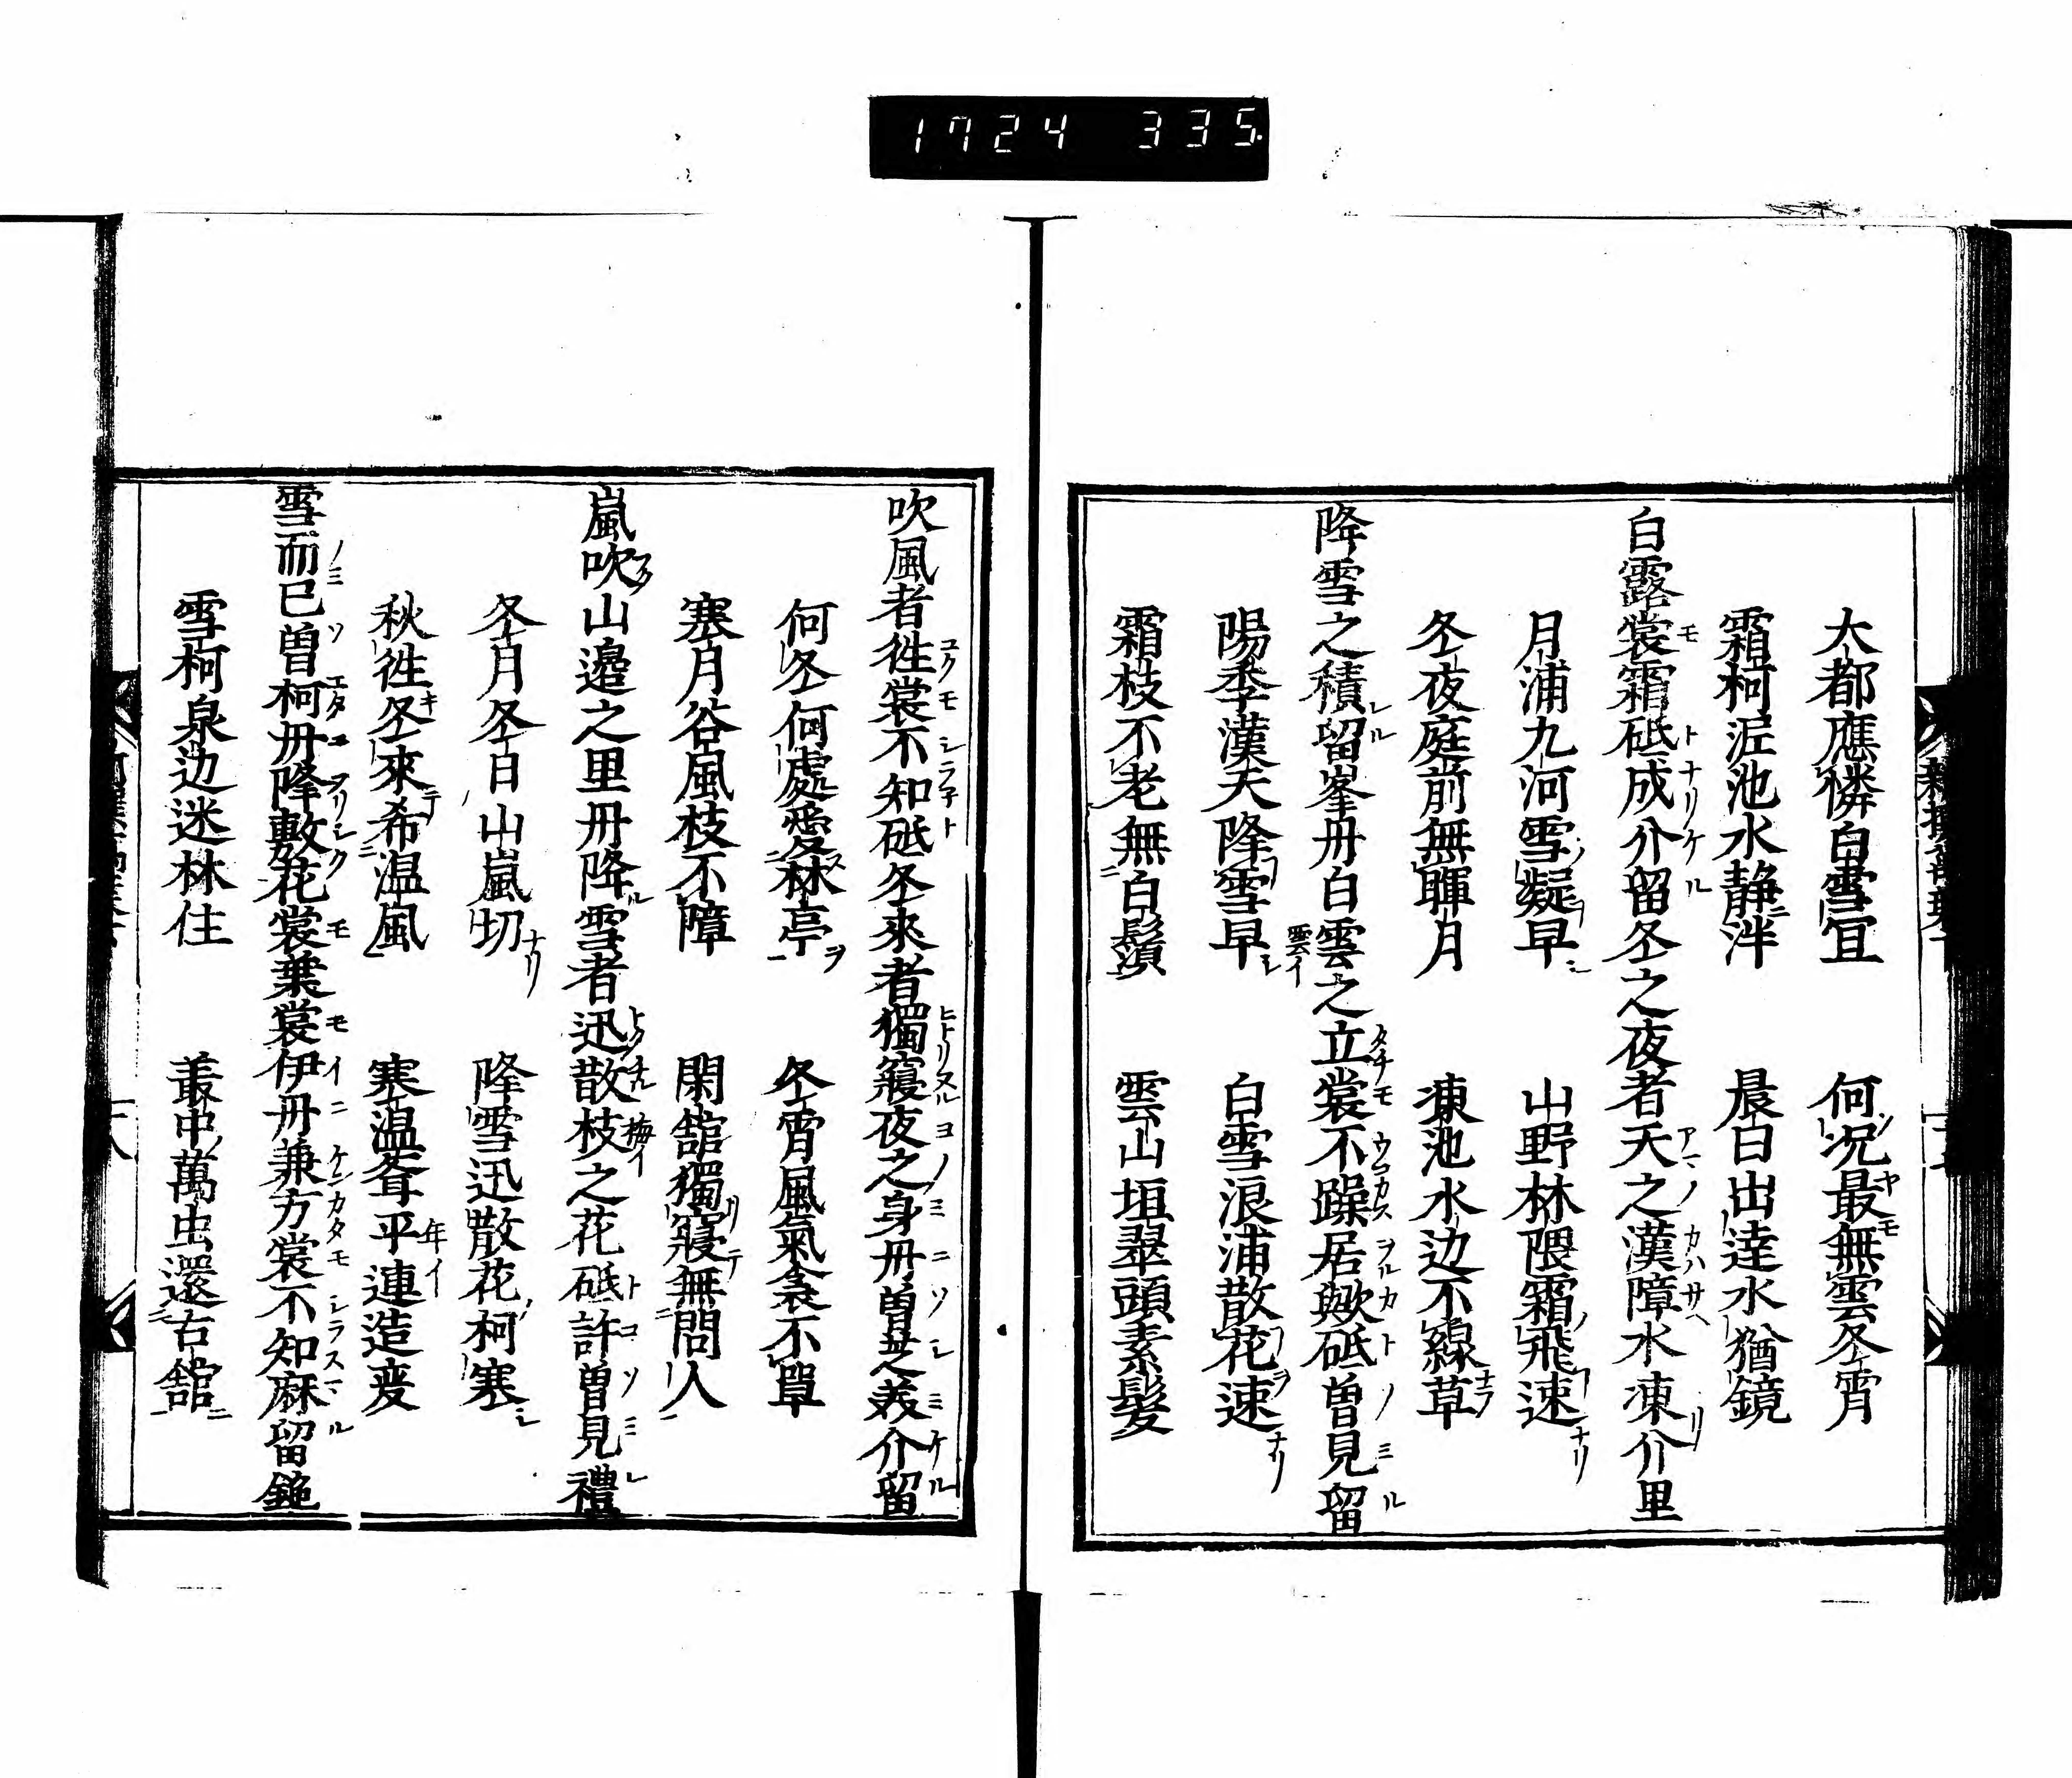 1724 335
大都應憐白雪宜　何况最無雲冬霄
霜柯泥池水静泮　晨白出達水猶鏡
白露裳霜砥成介留冬之夜者天之漢障水凍介里
月浦九河雪凝早　山野林隈霜飛速
冬夜庭前無暉月　凍池水边不線草
降雪之積留峯丹白雲之立裳不躁居歟砥曽見留
陽季漢天降雪早　白雪浪浦散花速
霜枝不老無白鬚　雲山垣翠頭素髪
吹風者徃裳不知砥冬來者獨寢夜之身丹曽芝美介留
何冬何處愛林亭　冬霄風氣衾不單
寒月谷風枝不障　閑舘獨寢無問人
嵐吹山邉之里丹降雪者迅散枝之花砥許曽見禮
冬月冬日山嵐切　降雪迅散花柯寒
秋徃冬來希温風　寒温耷平連造変
雪而已曽柯丹降敷花裳葉裳伊丹兼方裳不知麻留鉇
雪柯泉边迷林住　叢中萬虫還右舘